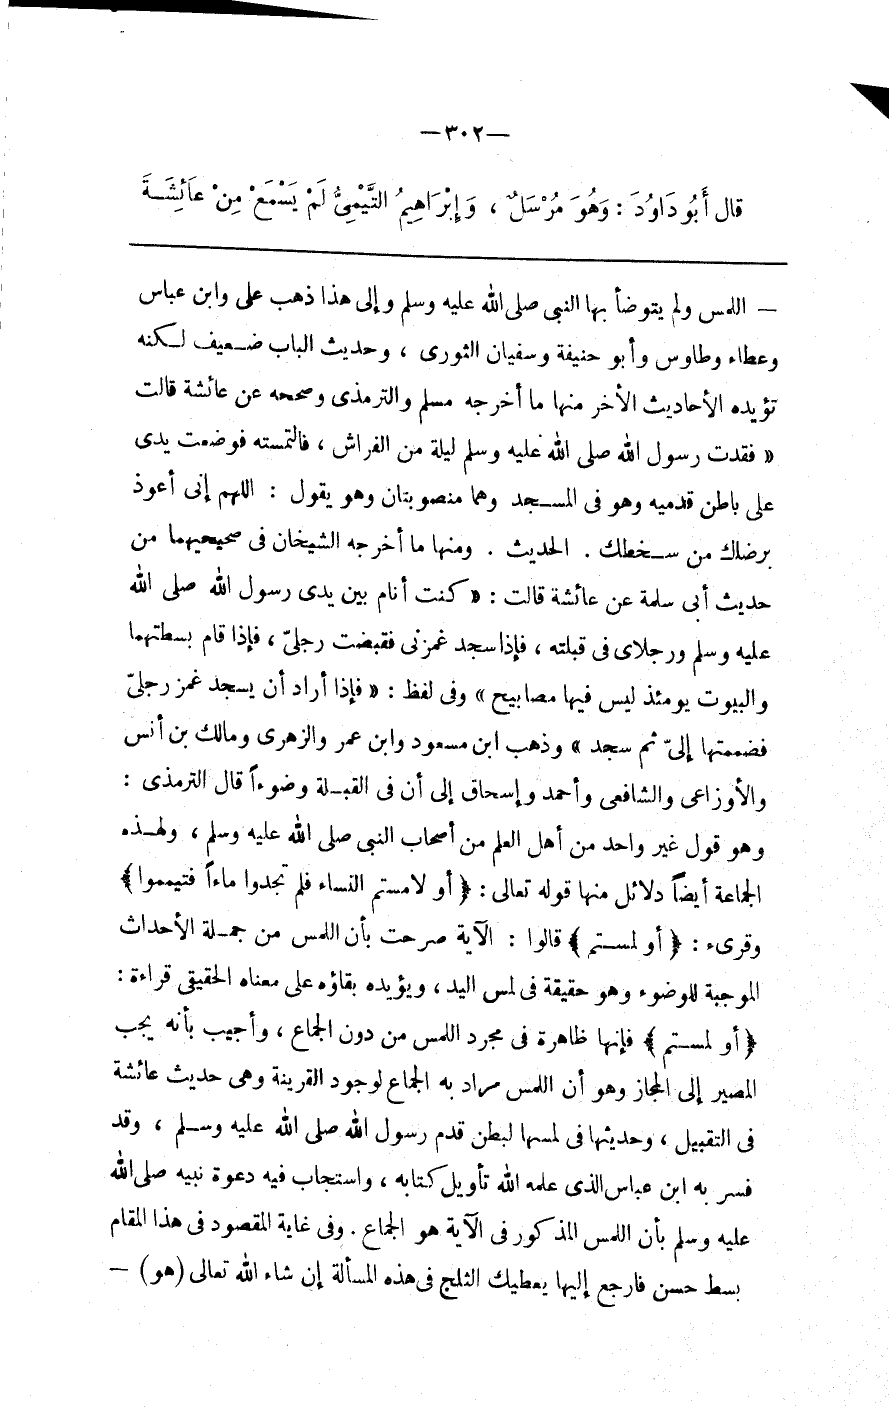 —٣٠٢—
قال أَبُو دَاوُدَ : وَهُوَ مُرْسَلٌ ، وَإِبْرَاهِيمُ التَّيْمِيُّ لَمْ يَسْمَعْ مِنْ عَائِشَةَ
— اللمس ولم يتوضأ بها النبى صلى الله عليه وسلم وإلى هذا ذهب على وابن عباس
وعطاء وطاوس وأبو حنيفة وسفيان الثورى ، وحديث الباب ضعيف لكنه
تؤيده الأحاديث الأخر منها ما أخرجه مسلم والترمذى وصححه عن عائشة قالت
« فقدت رسول الله صلى الله عليه وسلم ليلة من الفراش ، فالتمسته فوضعت يدى
على باطن قدميه وهو فى المسجد وهما منصوبتان وهو يقول : اللهم إنى أعوذ
برضاك من سخطك . الحديث . ومنها ما أخرجه الشيخان فى صحيحيهما من
حديث أبى سلمة عن عائشة قالت : « كنت أنام بين يدى رسول الله صلى الله
عليه وسلم ورجلاى فى قبلته ، فإذا سجد غمزنى فقبضت رجلىّ ، فإذا قام بسطتهما
والبيوت يومئذ ليس فيها مصابيح » وفى لفظ : « فإذا أراد أن يسجد غمز رجلىّ
فضممتها إلىّ ثم سجد » وذهب ابن مسعود وابن عمر والزهرى ومالك بن أنس
والأوزاعى والشافعى وأحمد وإسحاق إلى أن فى القبلة وضوءاً قال الترمذى :
وهو قول غير واحد من أهل العلم من أصحاب النبى صلى الله عليه وسلم ، ولهذه
الجماعة أيضاً دلائل منها قوله تعالى : ﴿ أو لامستم النساء فلم تجدوا ماءاً فتيمموا ﴾
وقرىء : ﴿ أو لمستم ﴾ قالوا : الآية صرحت بأن اللمس من جملة الأحداث
الموجبة للوضوء وهو حقيقة فى لمس اليد ، ويؤيده بقاؤه على معناه الحقيقى قراءة :
﴿ أو لمستم ﴾ فإنها ظاهرة فى مجرد اللمس من دون الجماع ، وأجيب بأنه يجب
المصير إلى المجاز وهو أن اللمس مراد به الجماع لوجود القرينة وهى حديث عائشة
فى التقبيل ، وحديثها فى لمسها لبطن قدم رسول الله صلى الله عليه وسلم ، وقد
فسر به ابن عباس الذى علمه الله تأويل كتابه ، واستجاب فيه دعوة نبيه صلى الله
عليه وسلم بأن اللمس المذكور فى الآية هو الجماع . وفى غاية المقصود فى هذا المقام
بسط حسن فارجع إليها يعطيك الثلج فى هذه المسألة إن شاء الله تعالى (هو) —